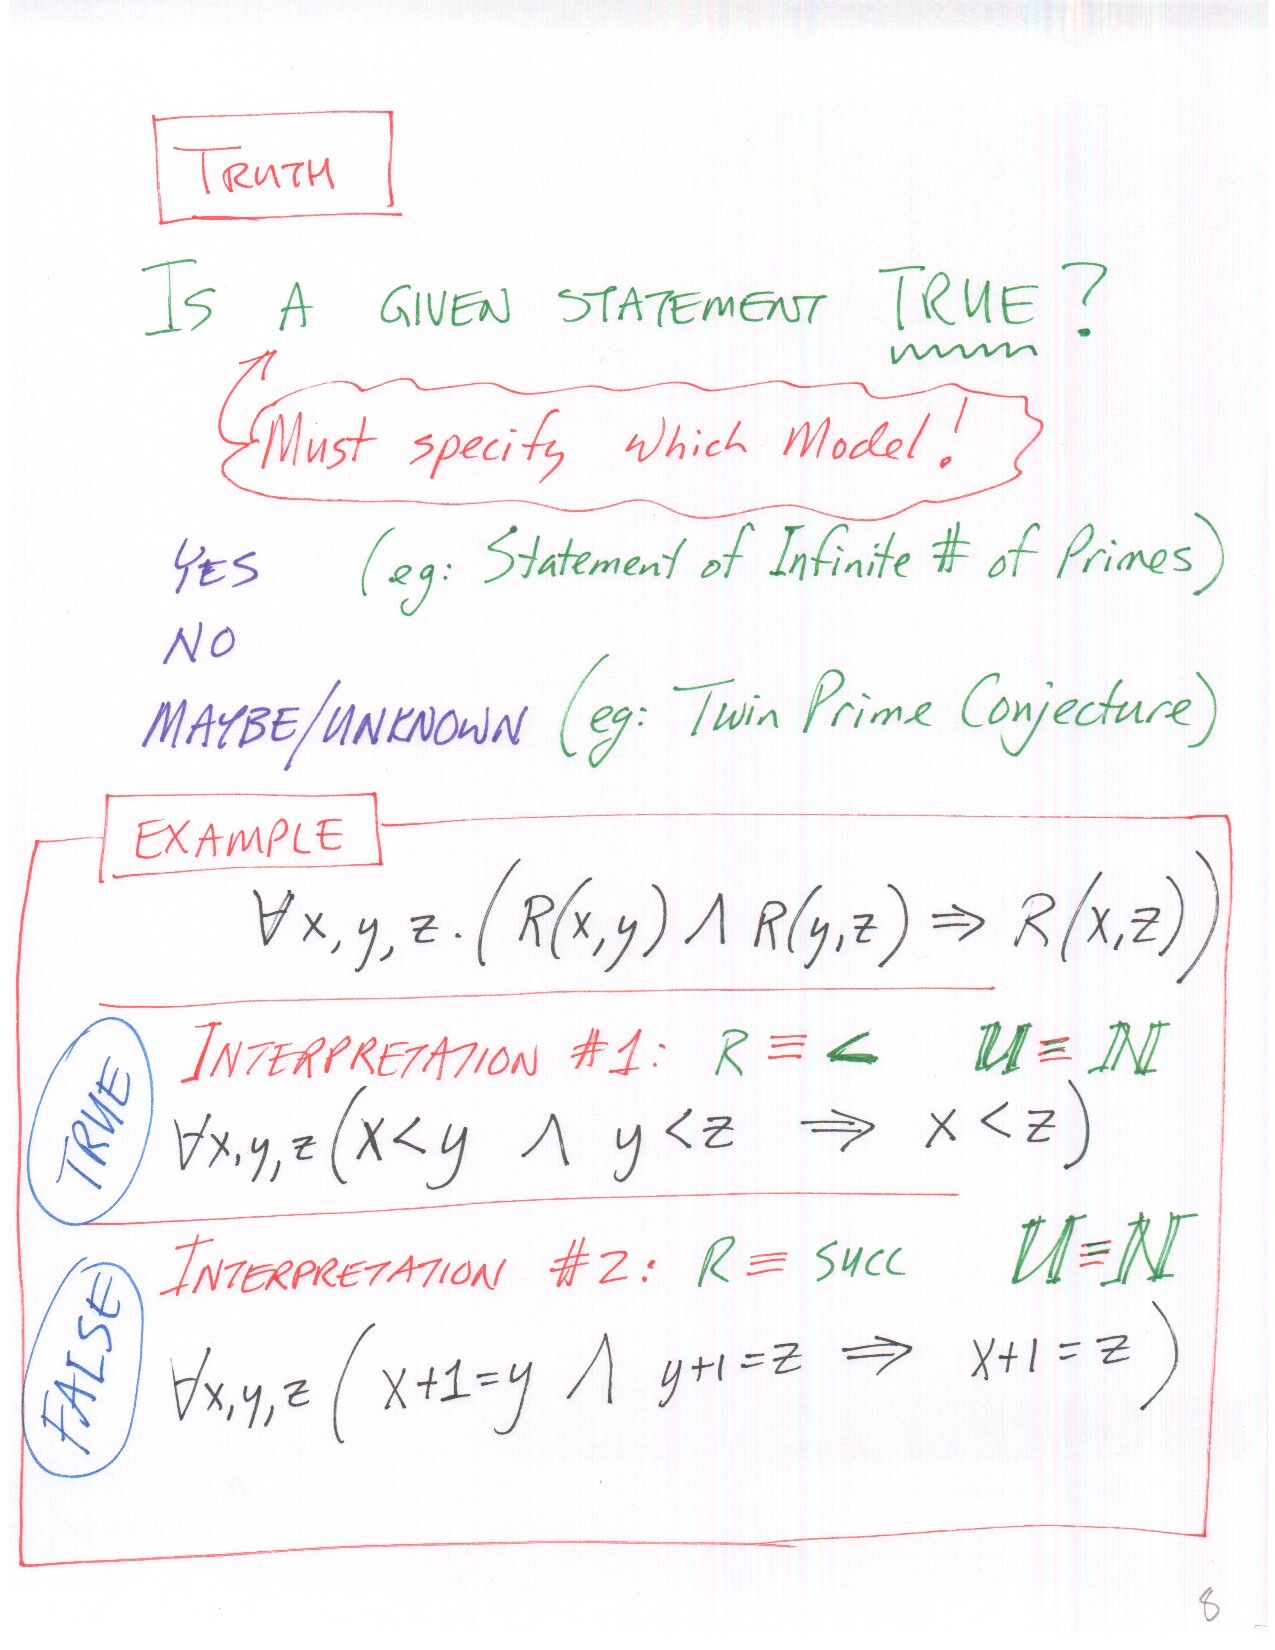 TRUTH
IS A GIVEN STATEMENT TRUE?
Must specify which Model!
YES (eg: Statement of Infinite # of Primes)
NO
MAYBE/UNKNOWN (eg: Twin Prime Conjecture)
EXAMPLE
∀x,y,z.(R(x,y) ∧ R(y,z) ⇒ R(x,z))
INTERPRETATION #1: R ≡ < U ≡ ℕ
TRUE
∀x,y,z(x<y ∧ y<z ⇒ x<z)
INTERPRETATION #2: R ≡ succ U ≡ ℕ
FALSE
∀x,y,z(x+1=y ∧ y+1=z ⇒ x+1=z)
8